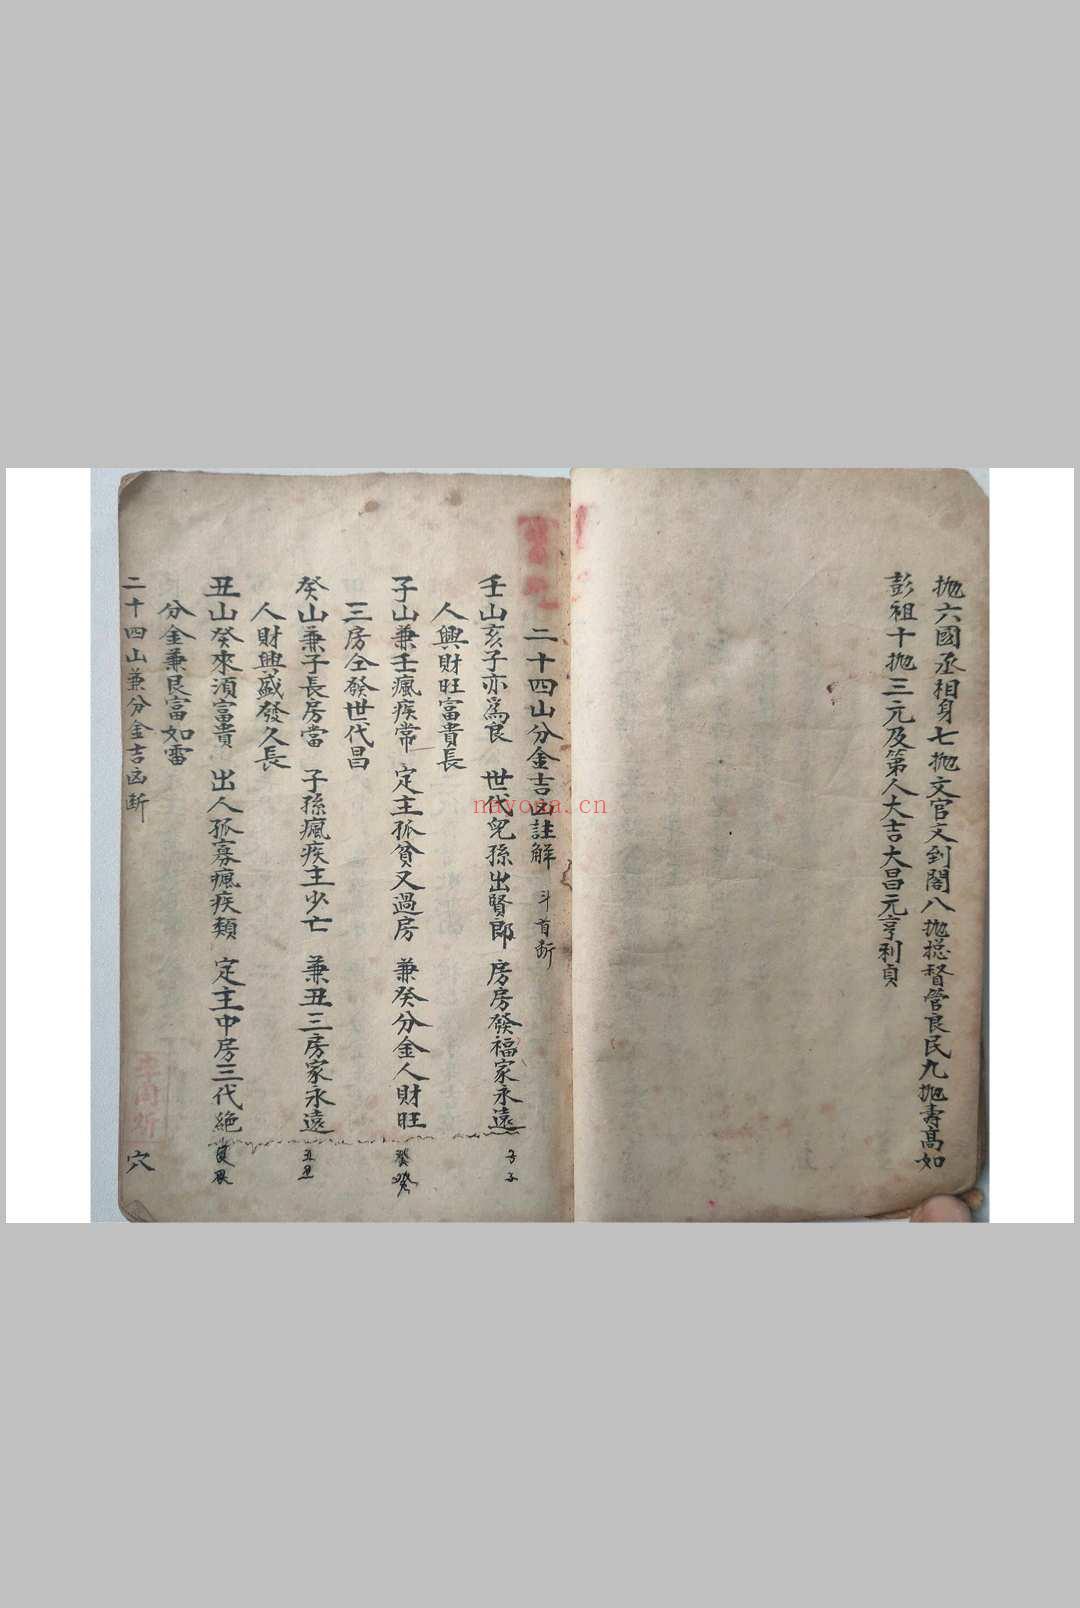 抛六國丞相身七抛文官文到閣八抛總督管良民九抛壽高如
彭祖十抛三元及第人大吉大昌元亨利貞
二十四山分金吉凶註解 斗首断
壬山亥子亦爲良 世代兒孫出賢郎 房房發福家永遠
子子
人興財旺富貴長
子山兼壬瘋疾常 定主孤貧又過房 兼癸分金人財旺
癸癸
三房仝發世代昌
癸山兼子長房當 子孫瘋疾主少亡 兼丑三房家永遠
丑丑
人財興盛發久長
丑山癸來須富貴 出人孤寡瘋疾類 定主中房三代絶
艮艮
分金兼艮富如雷
二十四山兼分金吉凶断 穴
nayona.cn